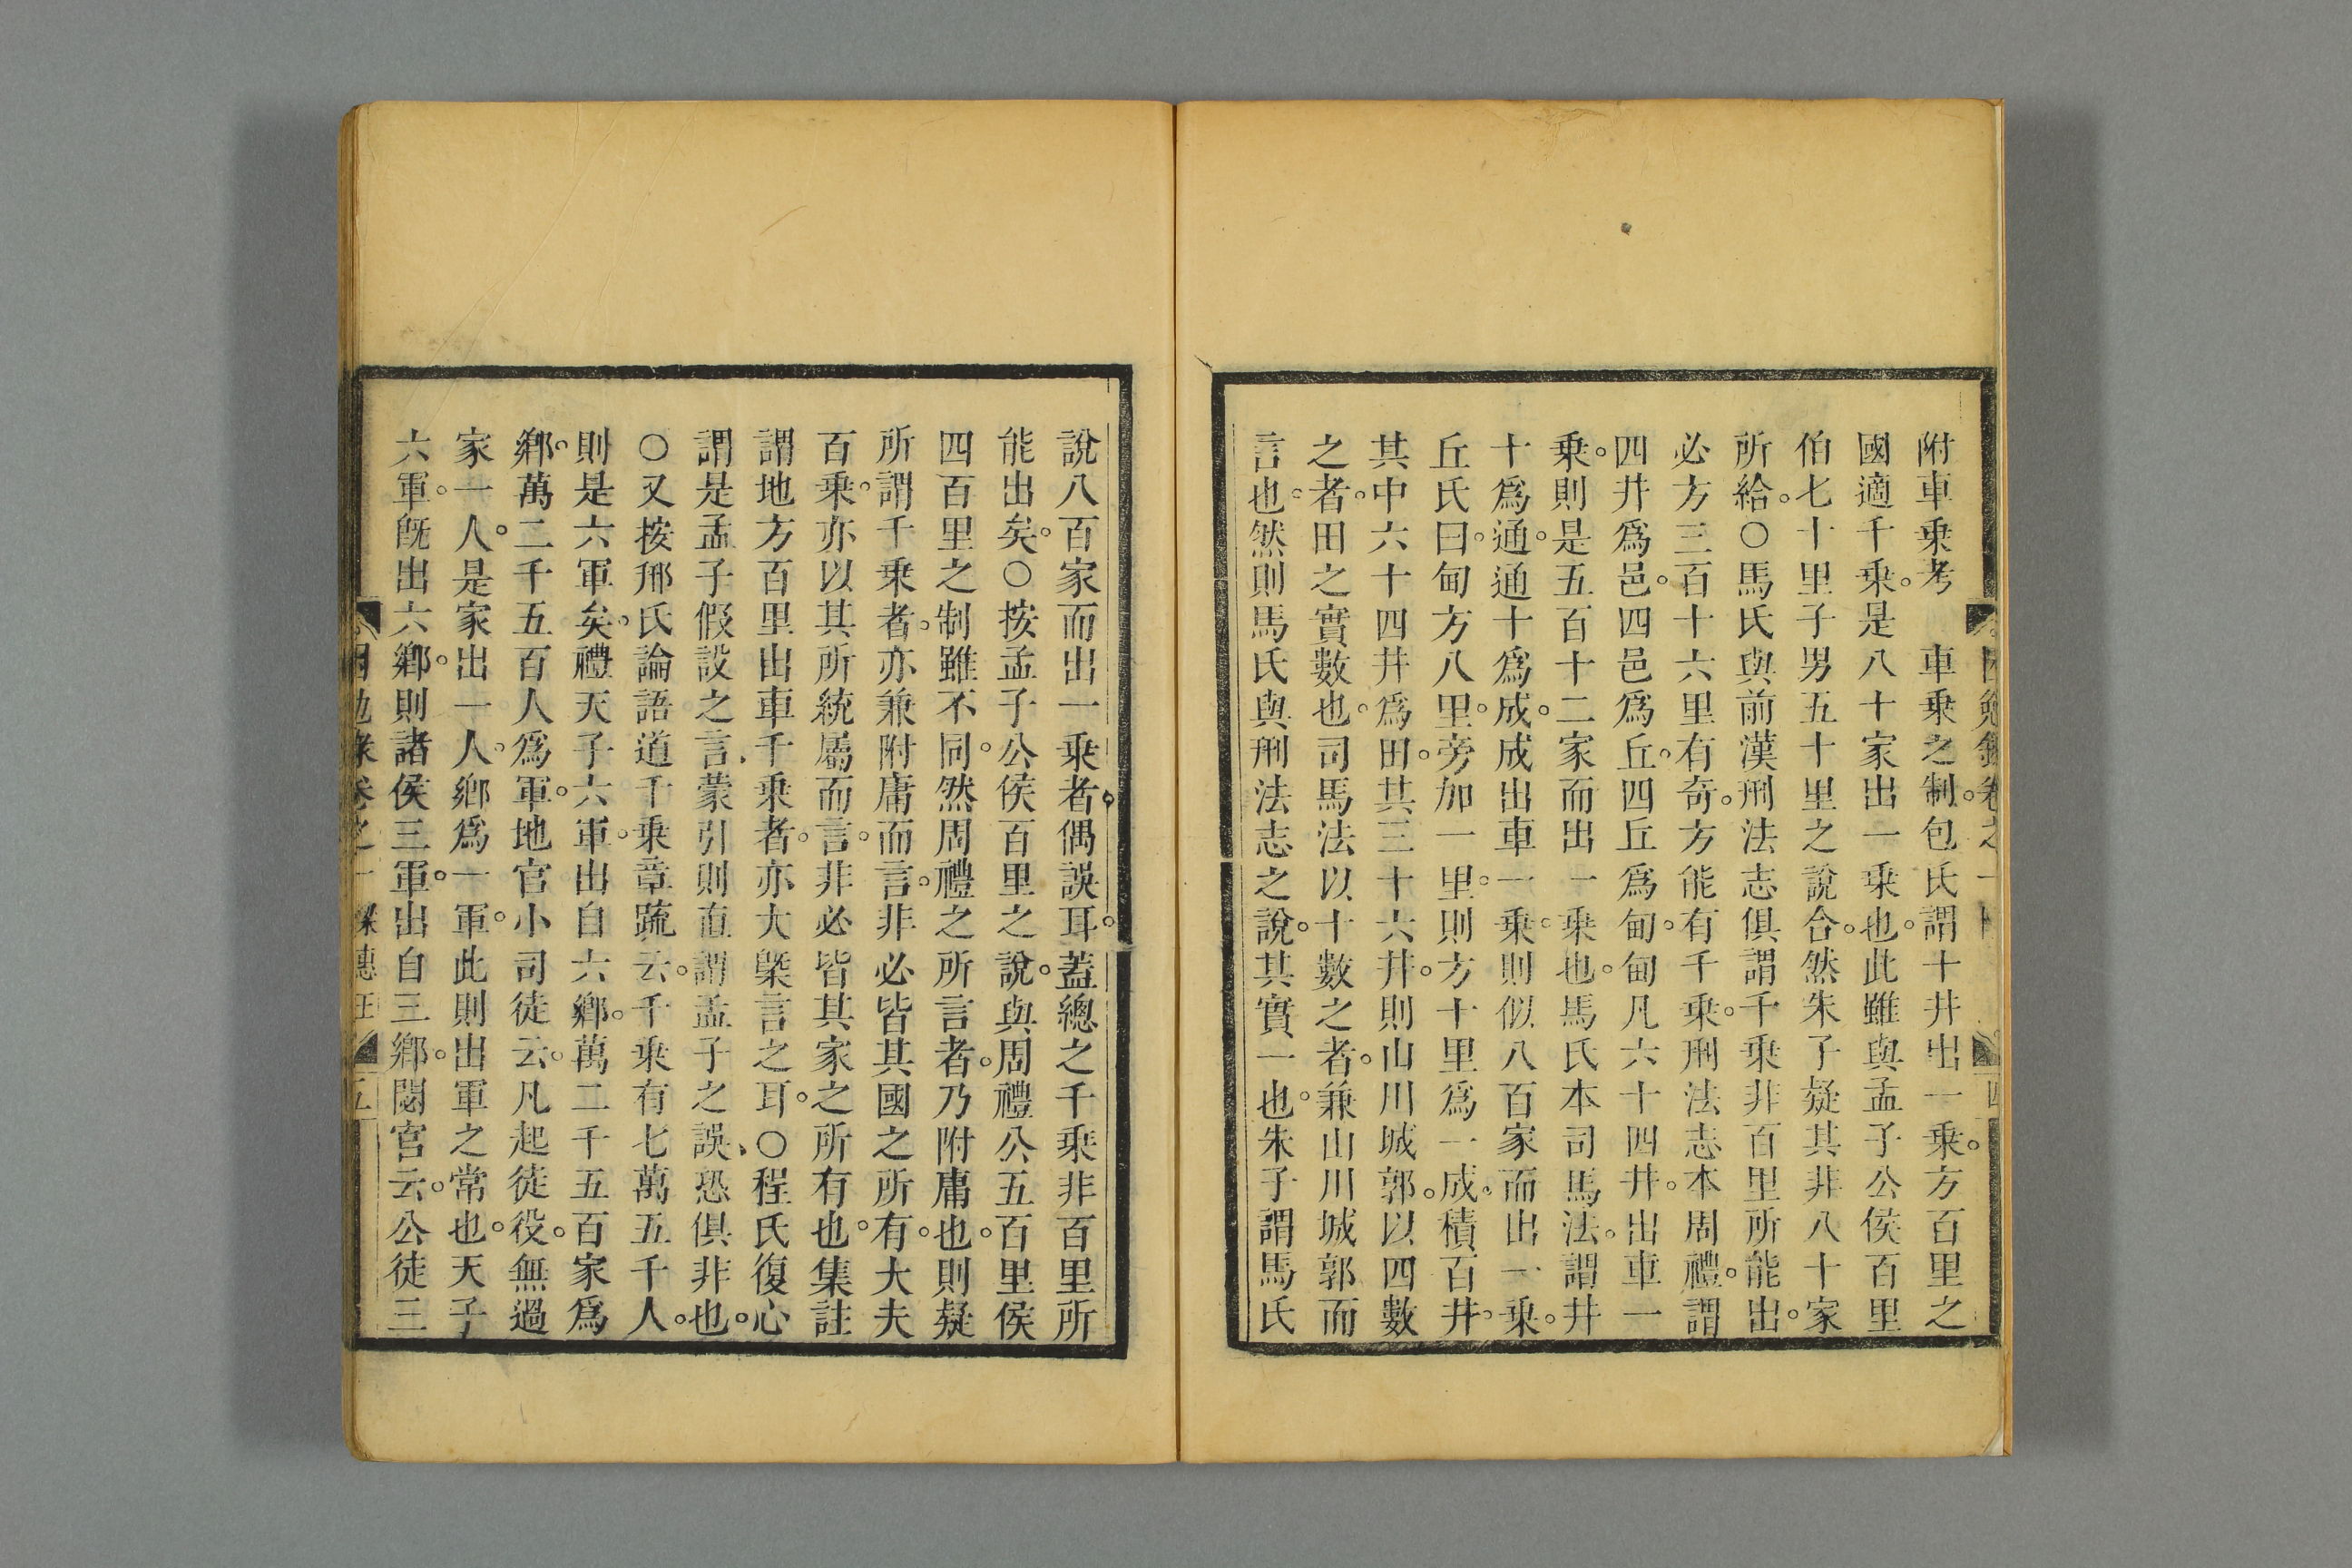 附車乗考　車乗之制。包氏謂十井出一乗。方百里之
國適千乗。是八十家出一乗也。此雖與孟子公侯百里
伯七十里子男五十里之說合。然朱子疑其非八十家
所給。○馬氏與前漢刑法志俱謂千乗非百里所能出。
必方三百十六里有奇。方能有千乗。刑法志本周禮。謂
四井爲邑。四邑爲丘。四丘爲甸。甸凡六十四井。出車一
乗。則是五百十二家而出一乗也。馬氏本司馬法。謂井
十爲通。通十爲成。成出車一乗。則似八百家而出一乗。
丘氏曰。甸方八里。旁加一里。則方十里爲一成。積百井。
其中六十四井爲田。其三十六井。則山川城郭。以四數
之者。田之實數也。司馬法以十數之者。兼山川城郭而
言也。然則馬氏與刑法志之說。其實一也。朱子謂馬氏
說八百家而出一乗者偶誤耳。蓋總之千乗非百里所
能出矣。○按孟子公侯百里之說。與周禮公五百里侯
四百里之制雖不同。然周禮之所言者。乃附庸也。則疑
所謂千乗者。亦兼附庸而言。非必皆其國之所有。大夫
百乗。亦以其所統屬而言。非必皆其家之所有也。集註
謂地方百里出車千乗者。亦大槩言之耳。○程氏復心
謂是孟子假設之言、蒙引則直謂孟子之誤、恐俱非也。
○又按邢氏論語道千乗章䟽云。千乗有七萬五千人。
則是六軍矣。禮天子六軍。出自六鄉。萬二千五百家爲
鄉。萬二千五百人爲軍。地官小司徒云。凡起徒役。無過
家一人。是家出一人。鄉爲一軍。此則出軍之常也。天子
六軍。旣出六鄉。則諸侯三軍。出自三鄉。閟宮云。公徒三